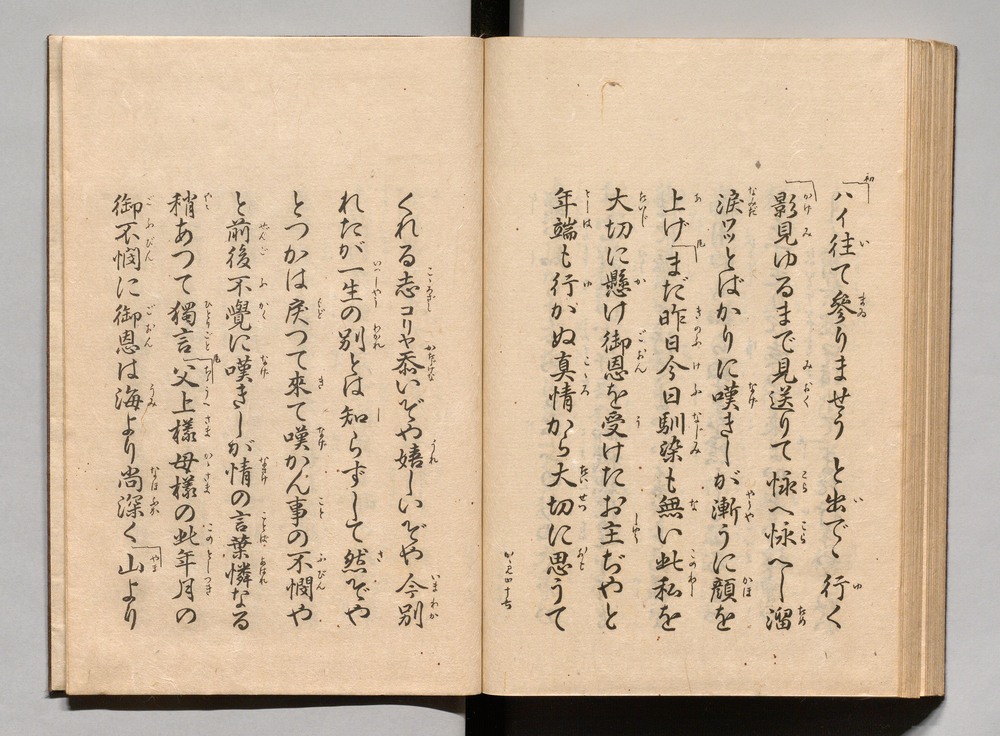 ハイ往て參りませうと出で行く
影見ゆるまで見送りて怺へ怺へし溜
涙ワッとばかりに嘆きしが漸うに顔を
上げ「まだ昨日今日馴染も無い此私を
大切に懸け御恩を受けたお主ぢやと
年端も行かぬ真情から大切に思うて
くれる志コリヤ忝いぞや嬉しいぞや今別
れたが一生の別とは知らずして然ぞや
とつかは戻つて來て嘆かん事の不憫や
と前後不覺に嘆きしが情の言葉憐なる
稍あつて獨言「父上樣母樣の此年月の
御不憫に御恩は海より尚深く山より